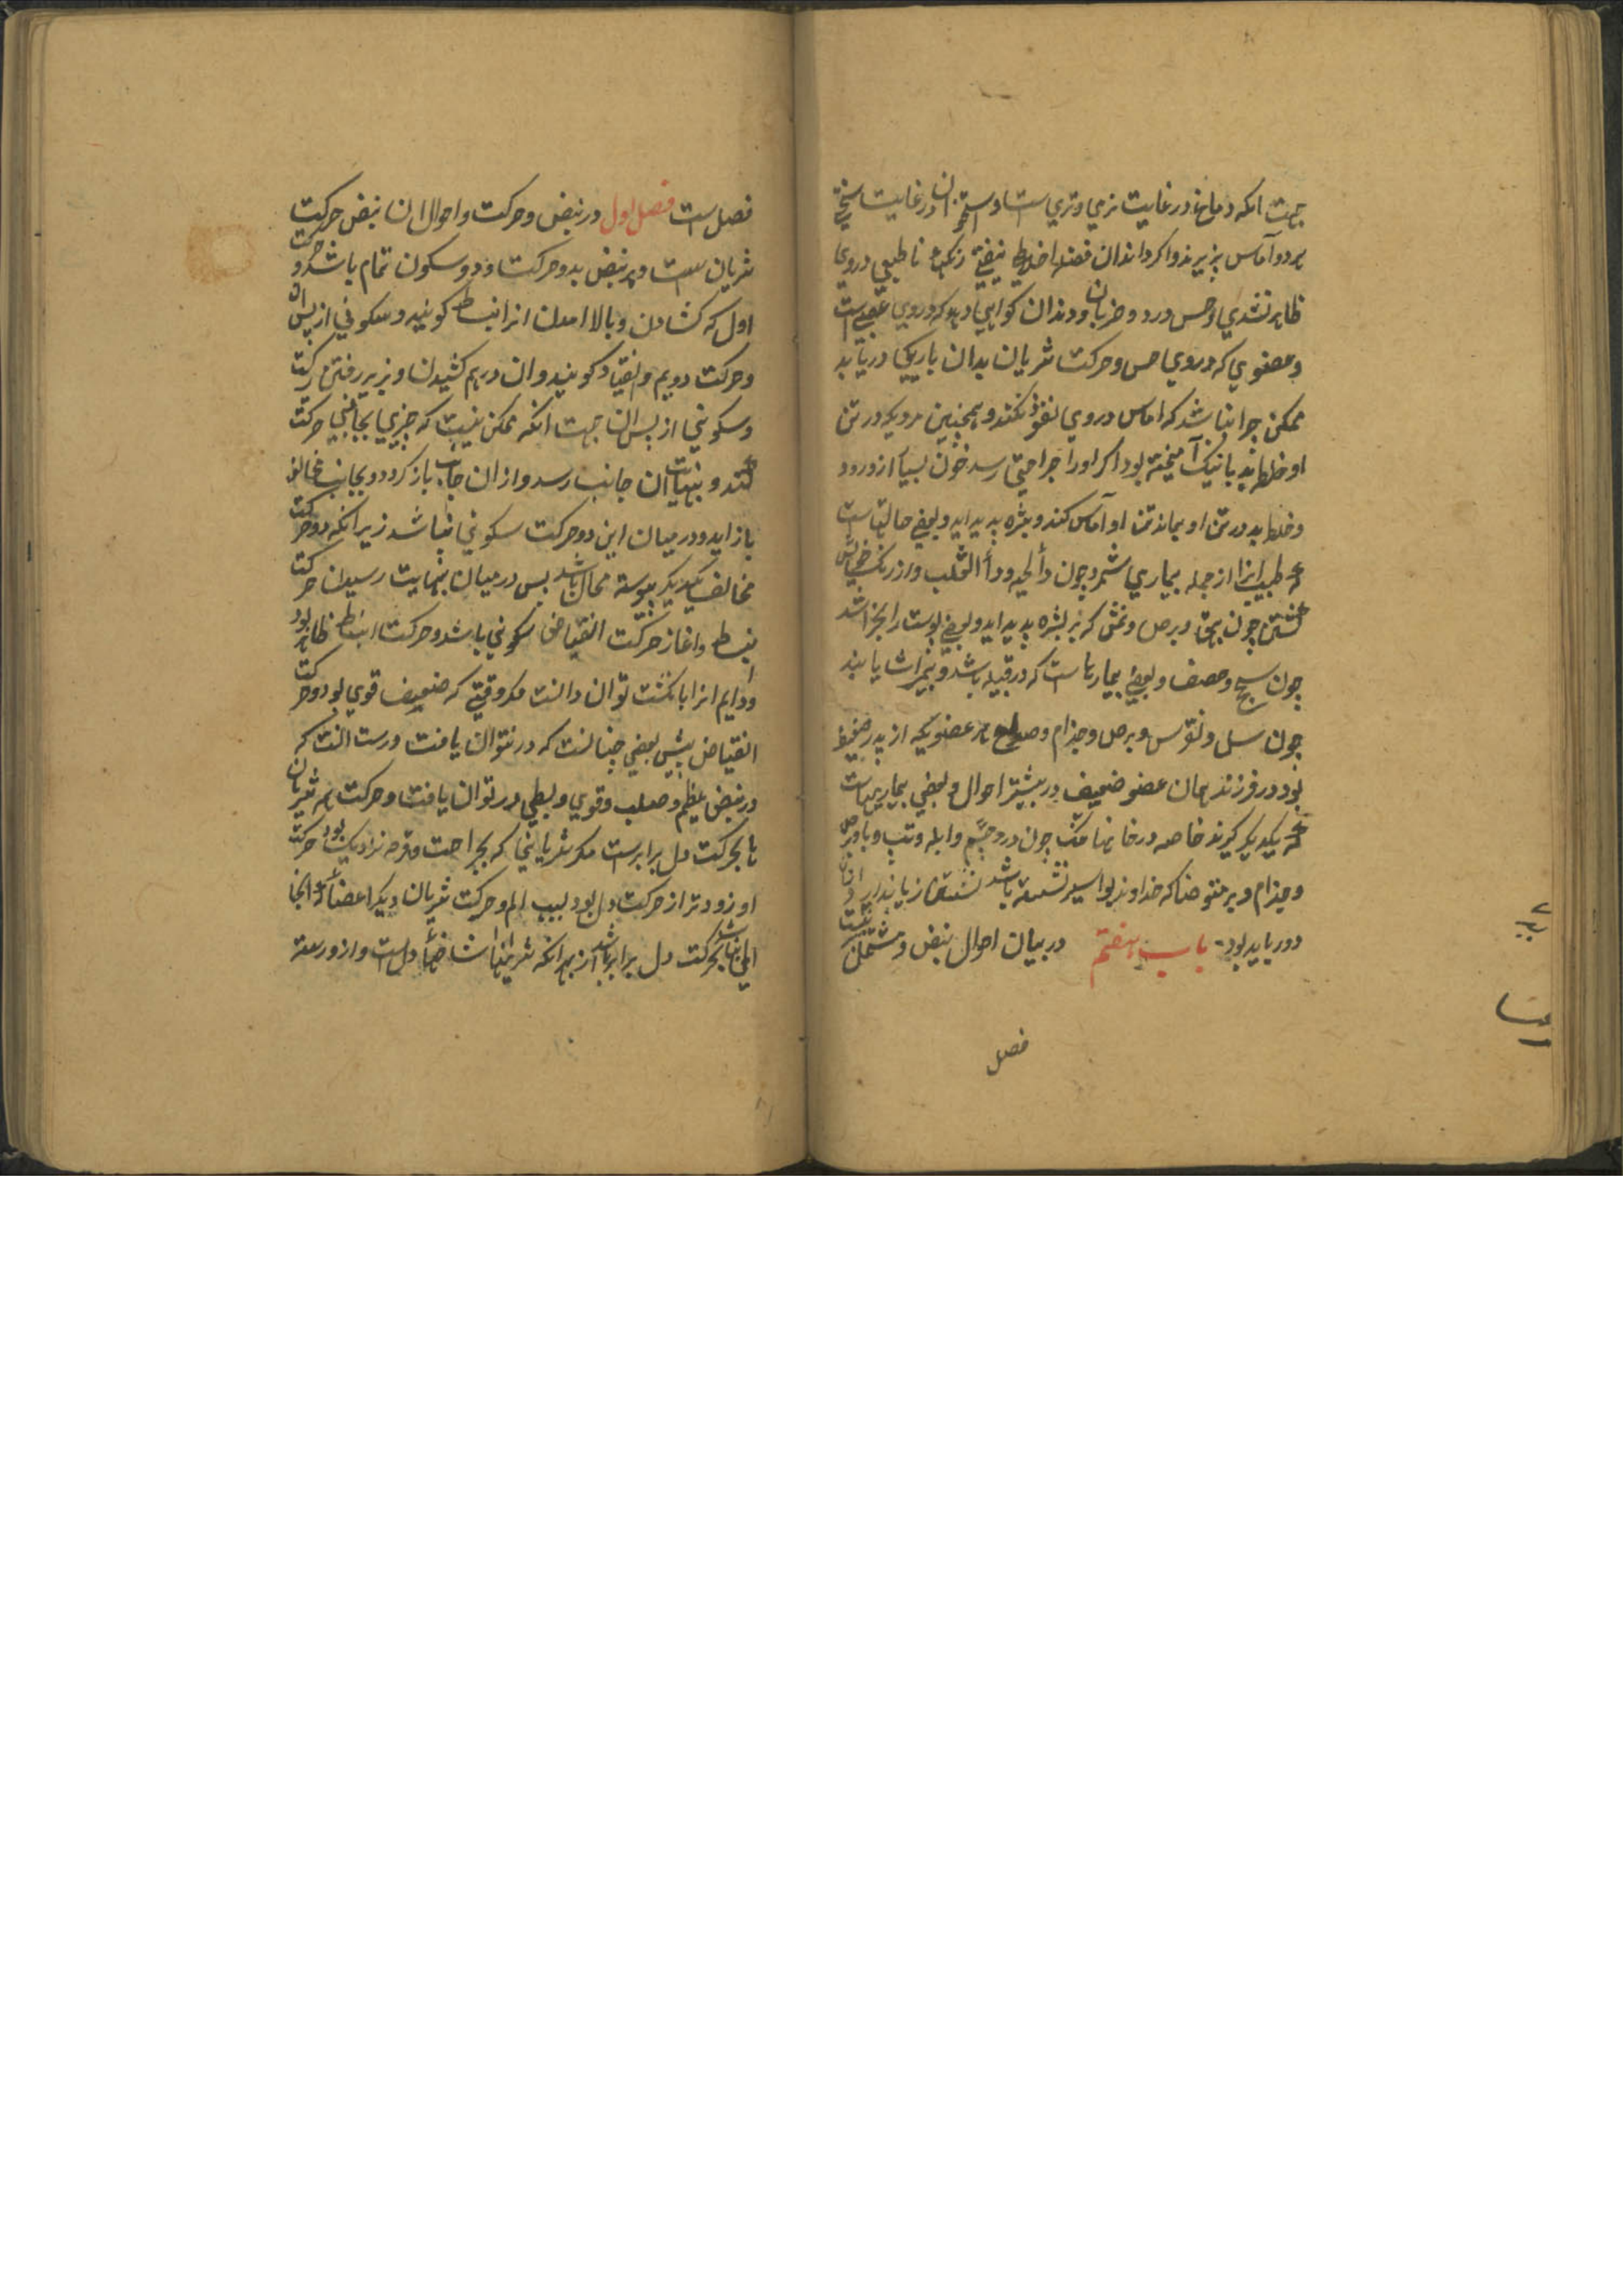 جهت انکه دماغ در غایت نرمی و تری است و استخوان در غایت سختی
هر دو آماس پذیرند و اکر دندان فضله اخلاط نپذیرفتی رنکهاء ناطبیعی در وی
ظاهر نشدی و حس درد و ضربان و دندان کواهی دهد که در وی عصبی است
و عضوی که در وی حس و حرکت شریان بدان باریکی دریابد
ممکن چرا نباشد که اماس در وی نفوذ نکند و همچنین مردیکه در تن
او خلط بد با نیک آمیخته بود اکر او را جراحتی رسد خون بسیار ازو رود
و خلط بد در تن او بماند تن او آماس کند و بثره پدید اید و بعضی حالتهاست
که طبیب انرا از جمله بیماری شمرد چون دأ الحیه و دأ الثعلب و از رنک خویش
کشتن چون بهق و برص و نمش که بر بشره پدید اید و بعضی پوست را بخراشد
چون سحج و حصف و بعضی بیماریهاست که در قبیله باشد و بمیراث یابند
چون سل و نقرس و برص و جذام و صلع هر عضویکه از پدر ضعیف
بود در فرزند همان عضو ضعیف در بیشتر احوال و بعضی بیماریهاست
که یکدیکر کیرند خاصه در خانها تنک چون درد چشم و ابله و تب و با و برص
و جذام و بر متوضا که خداوند بواسیر نشسته باشد نشستن زیان دارد از آن
دور باید بود باب هفتم در بیان احوال نبض و مشتمل بر بیست
فصل
فصل ست فصل اول در نبض و حرکت و احوال ان نبض حرکت
شریان ست و هر نبض بدو حرکت و دو سکون تمام باشد و حرکت
اول که کشادن و بالا امدن انرا انبساط کویند و سکونی از پس ان
و حرکت دویم و انقباض کویند و ان درهم کشیدن و بزیر رفتن رکست
و سکونی از پس ان جهت انکه ممکن نیست که چیزی بجانبی حرکت
کند و بنهایت ان جانب رسد و از ان جانب باز کردد و بجانب مخالف
باز اید و در میان این دو حرکت سکونی نباشد زیرا انکه دو حرکت
مخالف یکدیکر پیوسته محال باشد پس در میان بنهایت رسیدن حرکت
انبساط و اغاز حرکت انقباض سکونی باشد و حرکت انبساط ظاهر بود
و دایم انرا بانکشت توان دانست مکر وقتی که ضعیف قوی بود و حرکت
انقباض پیش بعضی چنانست که در نتوان یافت و رست انست که
در نبض عظیم و صلب و قوی و بطی در توان یافت و حرکت همه شریان
با حرکت دل برابرست مکر شریانی که بجراحت و قرحه نزدیک بود حرکت
او زودتر از حرکت دل بود بسبب الم و حرکت شریان دیکر اعضا که انجا
المی نباشد بحرکت دل برابر باشد از بهر انکه شریانها شاخهاء دل ست و ازو رسته